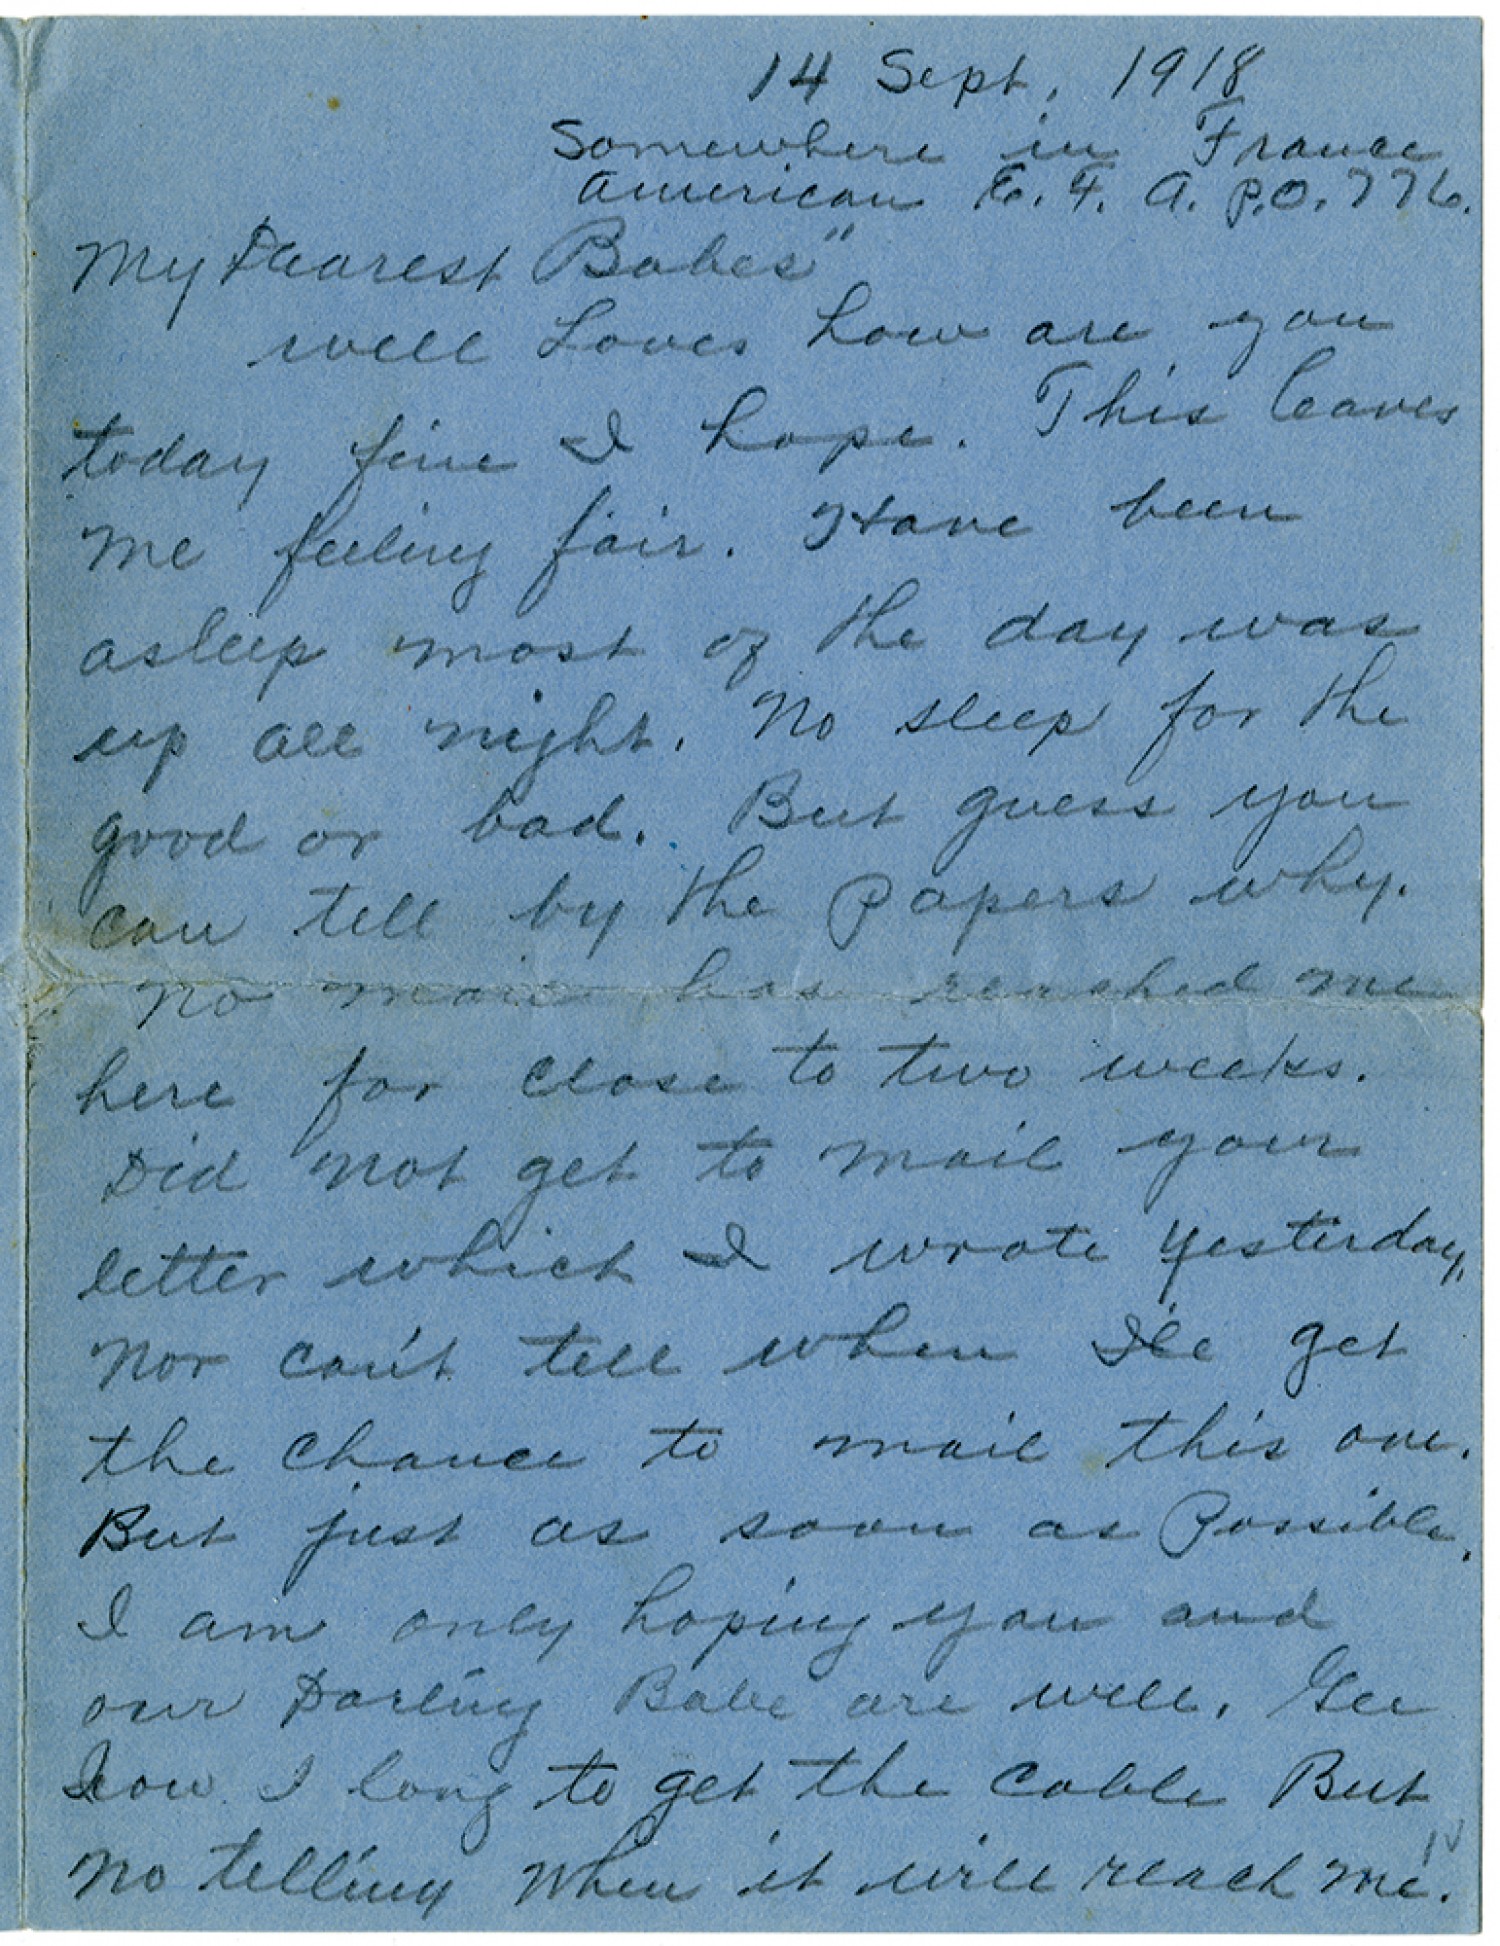 14 Sept, 1918
Somewhere in France
American E. F. A. P.O. 776.
My Dearest Babes"
well Loves how are you
today fine I hope. This leaves
me feeling fair. Have been
asleep most of the day was
up all night. No sleep for the
good or bad. But guess you
can tell by the Papers why.
No mail has reached me
here for close to two weeks.
Did not get to mail your
letter which I wrote yesterday,
Nor can't tell when I'le get
the chance to mail this one.
But just as soon as Possible.
I am only hoping you and
our Darling Babe are well. Gee
how I long to get the cable But
No telling when it will reach me.